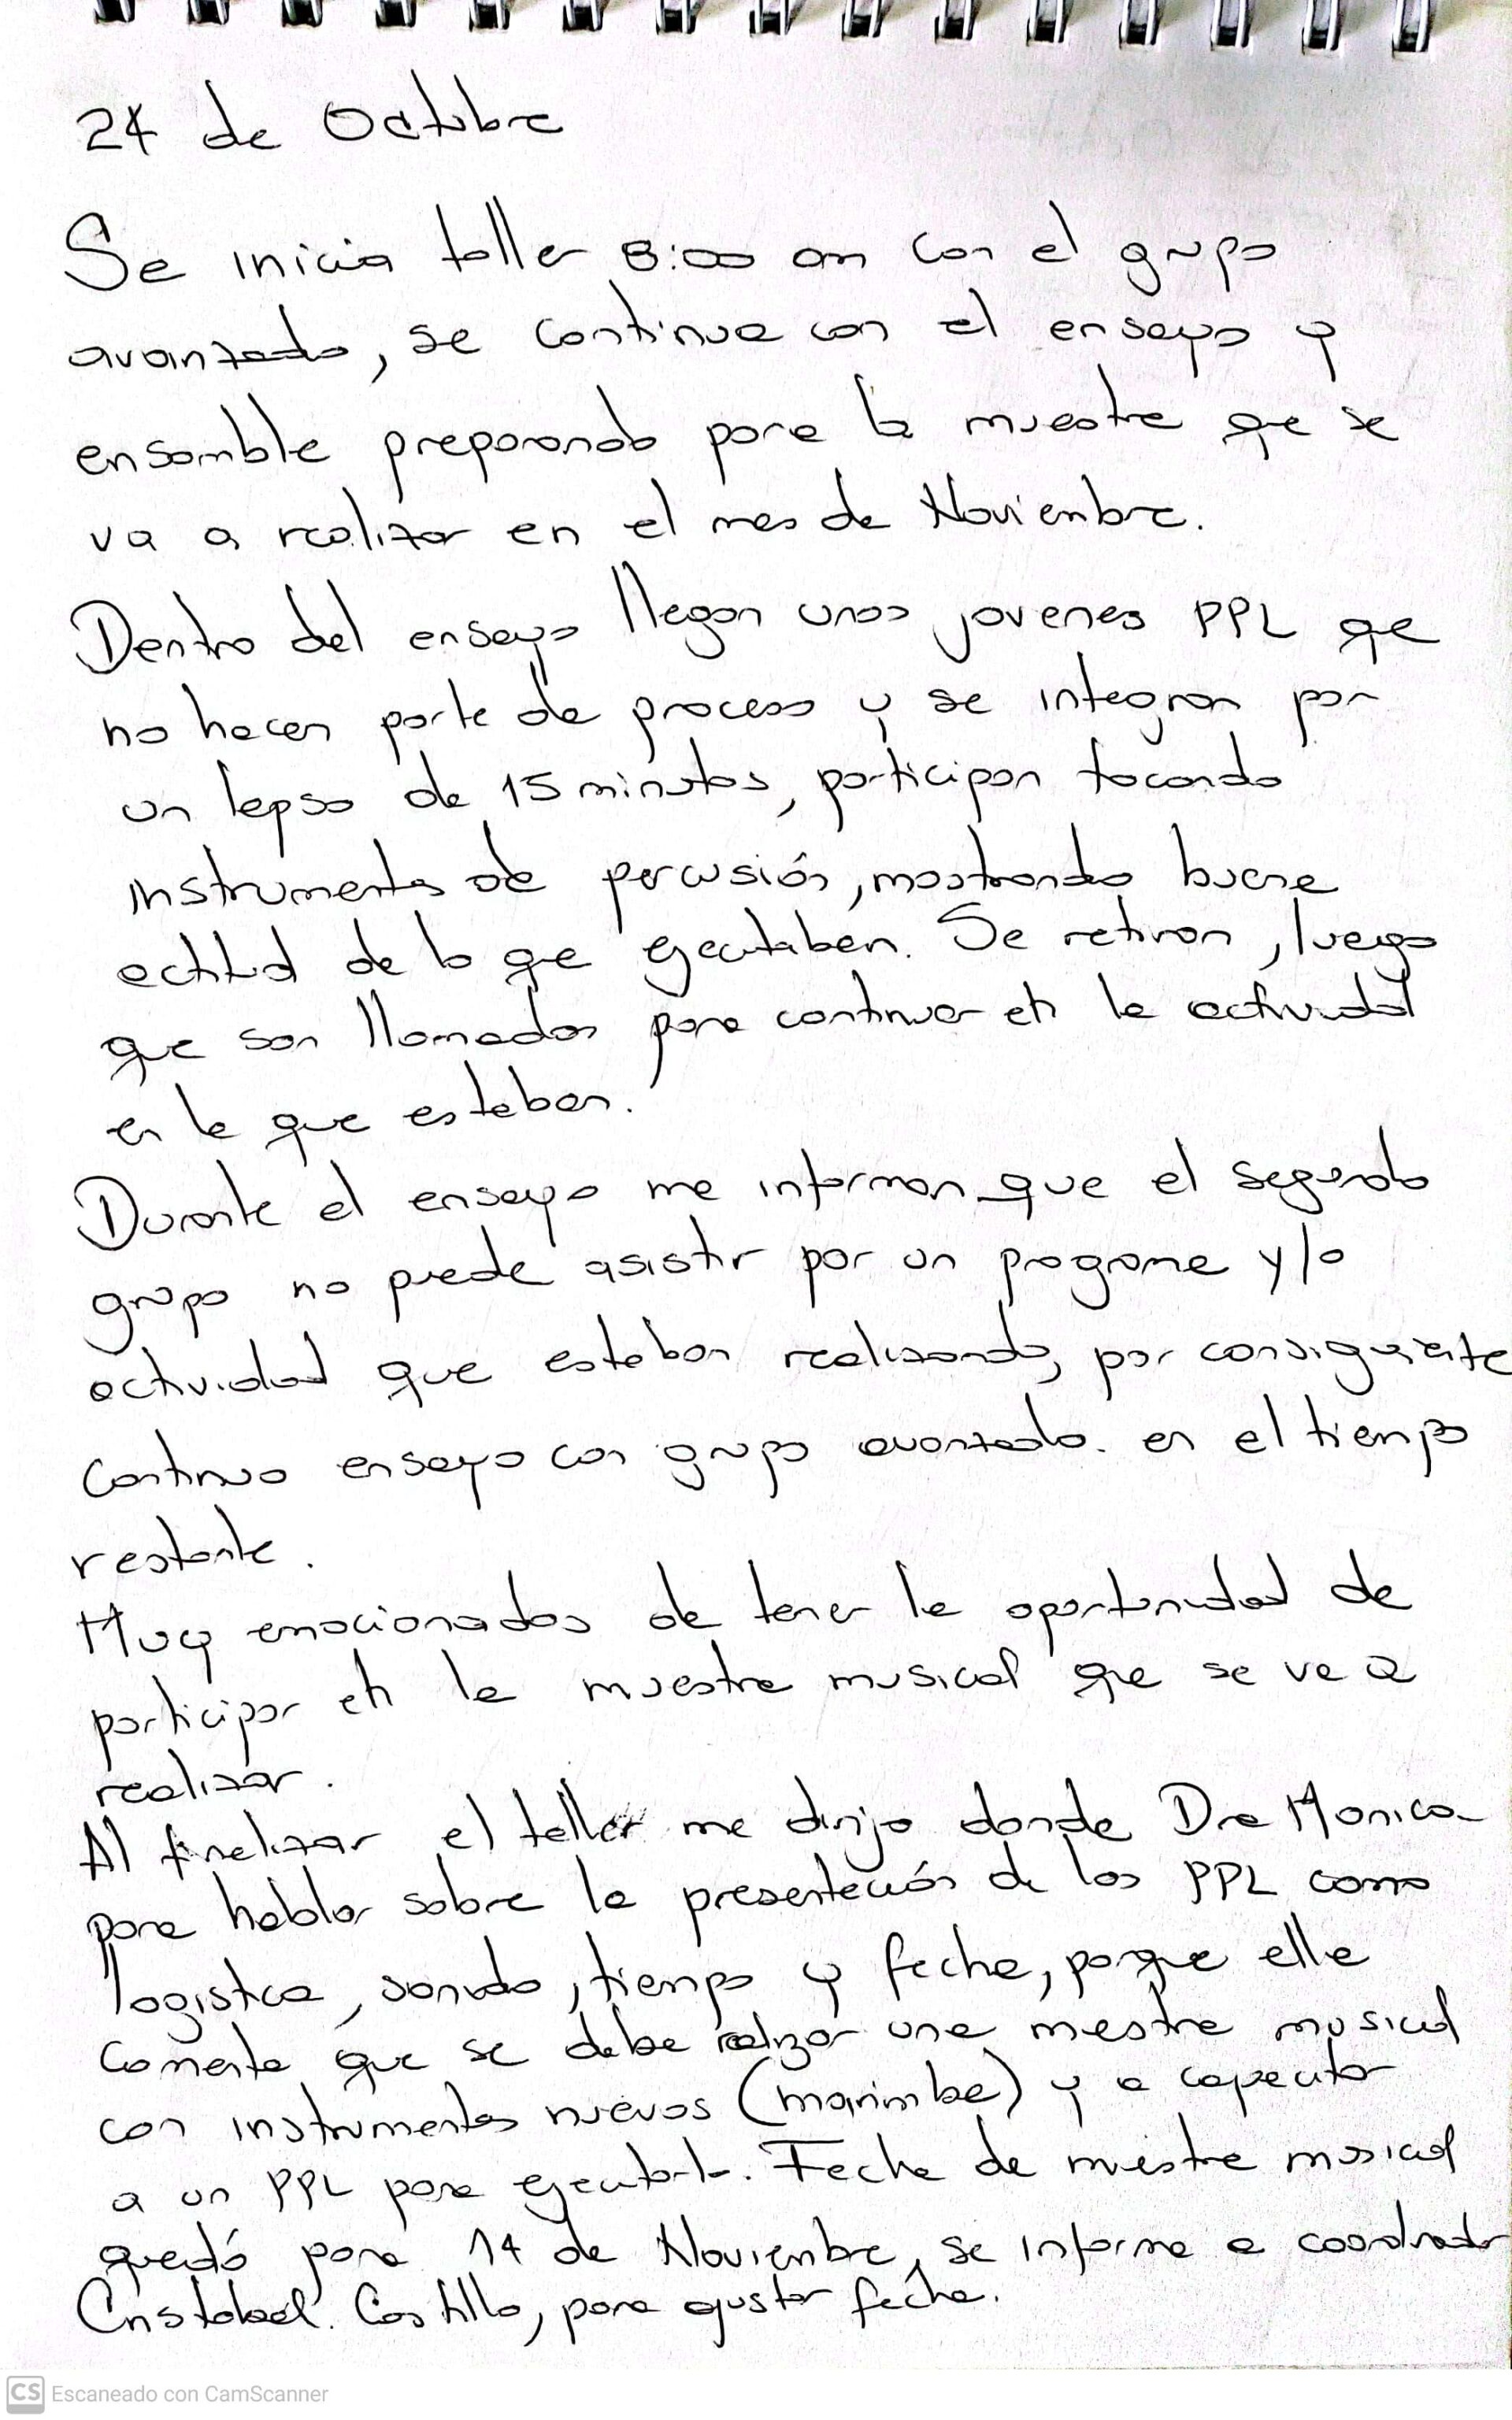 24 de Octubre
Se inicia taller 8:00 am con el grupo
avanzado, se continua con el ensayo y
ensamble preparando para la muestra que se
va a realizar en el mes de Noviembre.
Dentro del ensayo llegan unos jovenes PPL que
no hacen parte de proceso y se integran por
un lapso de 15 minutos, participan tocando
instrumentos de percusión, mostrando buena
actitud de lo que ejecutaban. Se retiran, luego
que son llamados para continuar en la actividad
en la que estaban.
Durante el ensayo me informan que el segundo
grupo no puede asistir por un programa y/o
actividad que estaban realizando, por consiguiente
continuo ensayo con grupo avanzado. en el tiempo
restante.
Muy emocionados de tener la oportunidad de
participar en la muestra musical que se va a
realizar.
Al finalizar el taller me dirijo donde Dra Monica
para hablar sobre la presentación de los PPL como
logistica, sonido, tiempo y fecha, porque ella
comenta que se debe realizar una muestra musical
con instrumentos nuevos (marimba) y a capacitar
a un PPL para ejecutarla. Fecha de muestra musical
quedó para 14 de Noviembre, se informa a coordinador
Cristobal. Castillo, para ajustar fecha.
CS Escaneado con CamScanner